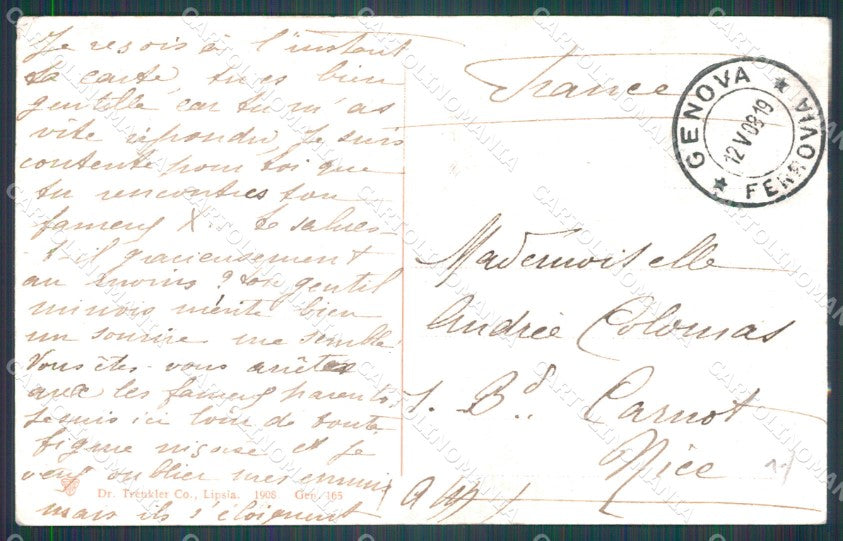 Je reçois à l'instant
ta carte tu es bien
gentille car tu m'as
vite répondu, Je suis
contente pour toi que
tu rencontres ton
fameux X. Te salues-
t-il gracieusement
au moins? ton gentil
minois mérite bien
un sourire me semble
Vous êtes-vous arrêtés
avec les fameux parents
Je suis ici loin de toute
figure niçoise et je
veux oublier mes ennuis
mais ils s'éloignent
Dr. Trenkler Co., Lipsia. 1908 Gen. 165
France
GENOVA
12 V 09 19
FERROVIA
Mademoiselle
Andrée Colomas
1. Bd. Carnot
Nice
CARTOLINOMANIA